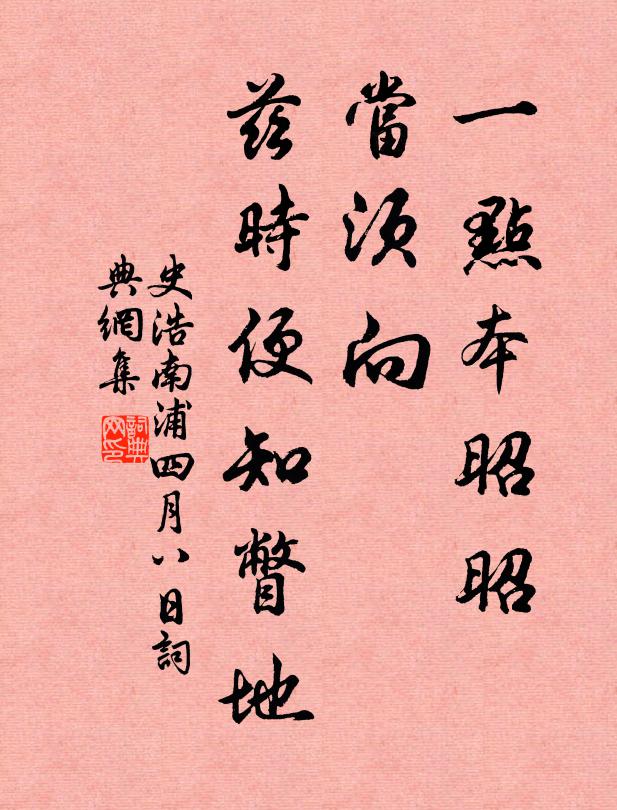 一點本昭昭
當須向
茲時便知瞥地
史浩南浦四月八日詞
典網集
詞典
网印